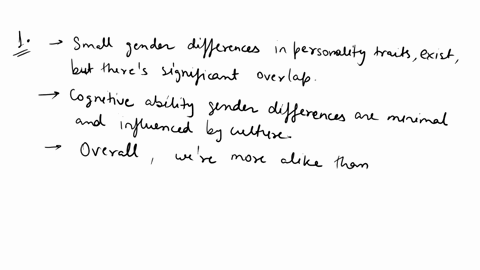 1. → Small gender differences in personality traits, exist,
but there's significant overlap.
→ Cognitive ability gender differences are minimal
and influenced by culture.
→ Overall, we're more alike than